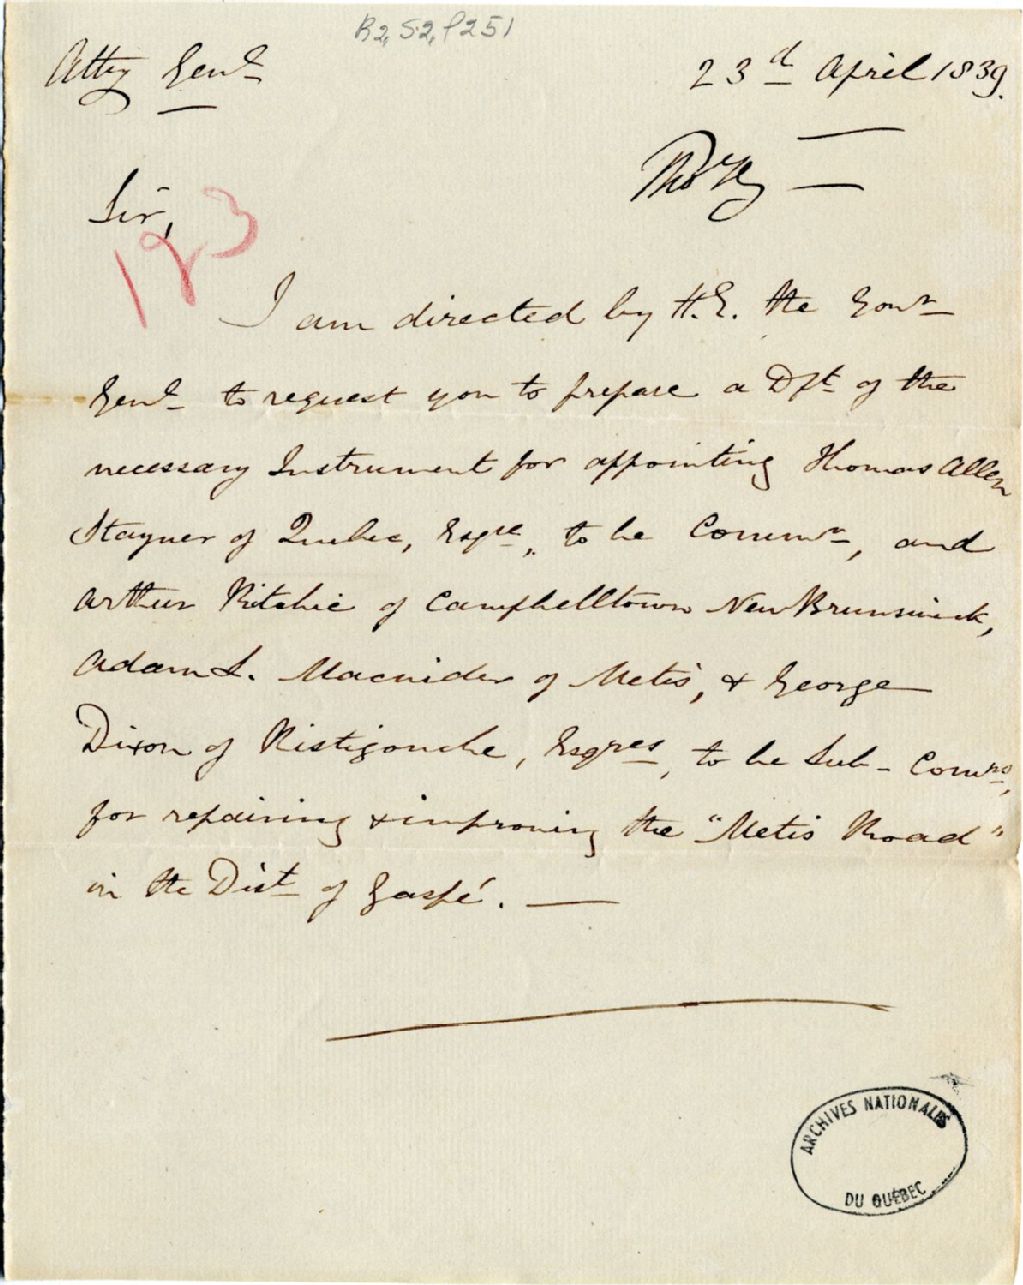 R2, S2, P251
Atty Genl
23d April 1839.
Sir,
123
I am directed by H.E. the Govr
Genl to request you to prepare a Dft of the
necessary Instrument for appointing Thomas Allen
Stayner of Quebec, Esqre, to be Commr, and
Arthur Ritchie of Campbelltown New Brunswick,
Adam L. Macnider of Metis, & George
Dixon of Ristigouche, Esqres, to be Sub-Comrs,
for repairing & improving the "Metis Road"
in the Dist of Gaspé.
ARCHIVES NATIONALES
DU QUÉBEC